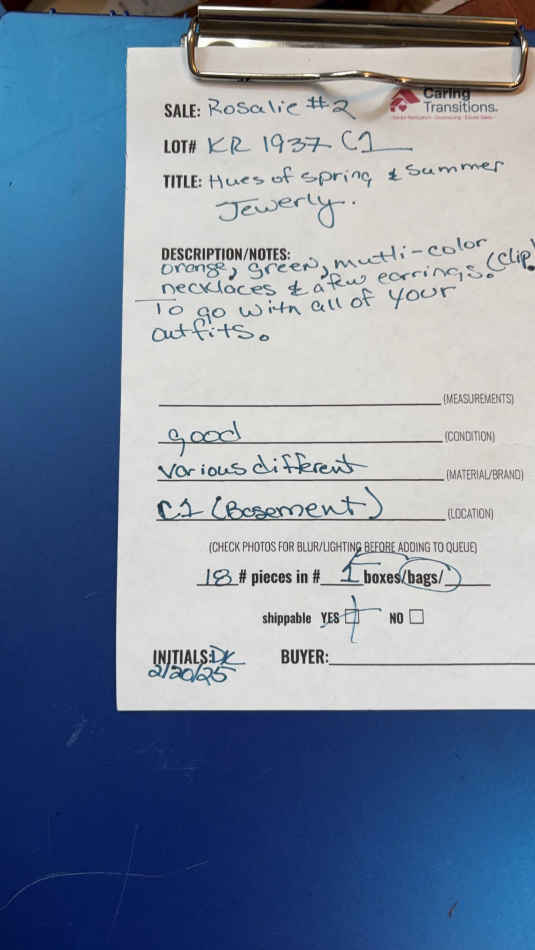 Caring
Transitions.
SALE: Rosalie #2
LOT# KR 1937 C1
TITLE: Hues of spring & summer
Jewerly.
DESCRIPTION/NOTES:
orange, green, mutli-color
necklaces & a few earrings. (clip)
To go with all of your
outfits.
(MEASUREMENTS)
good (CONDITION)
various different (MATERIAL/BRAND)
C1 (Basement) (LOCATION)
(CHECK PHOTOS FOR BLUR/LIGHTING BEFORE ADDING TO QUEUE)
18 # pieces in # 1 boxes/bags/
shippable YES NO
INITIALS: DK BUYER:
2/20/25